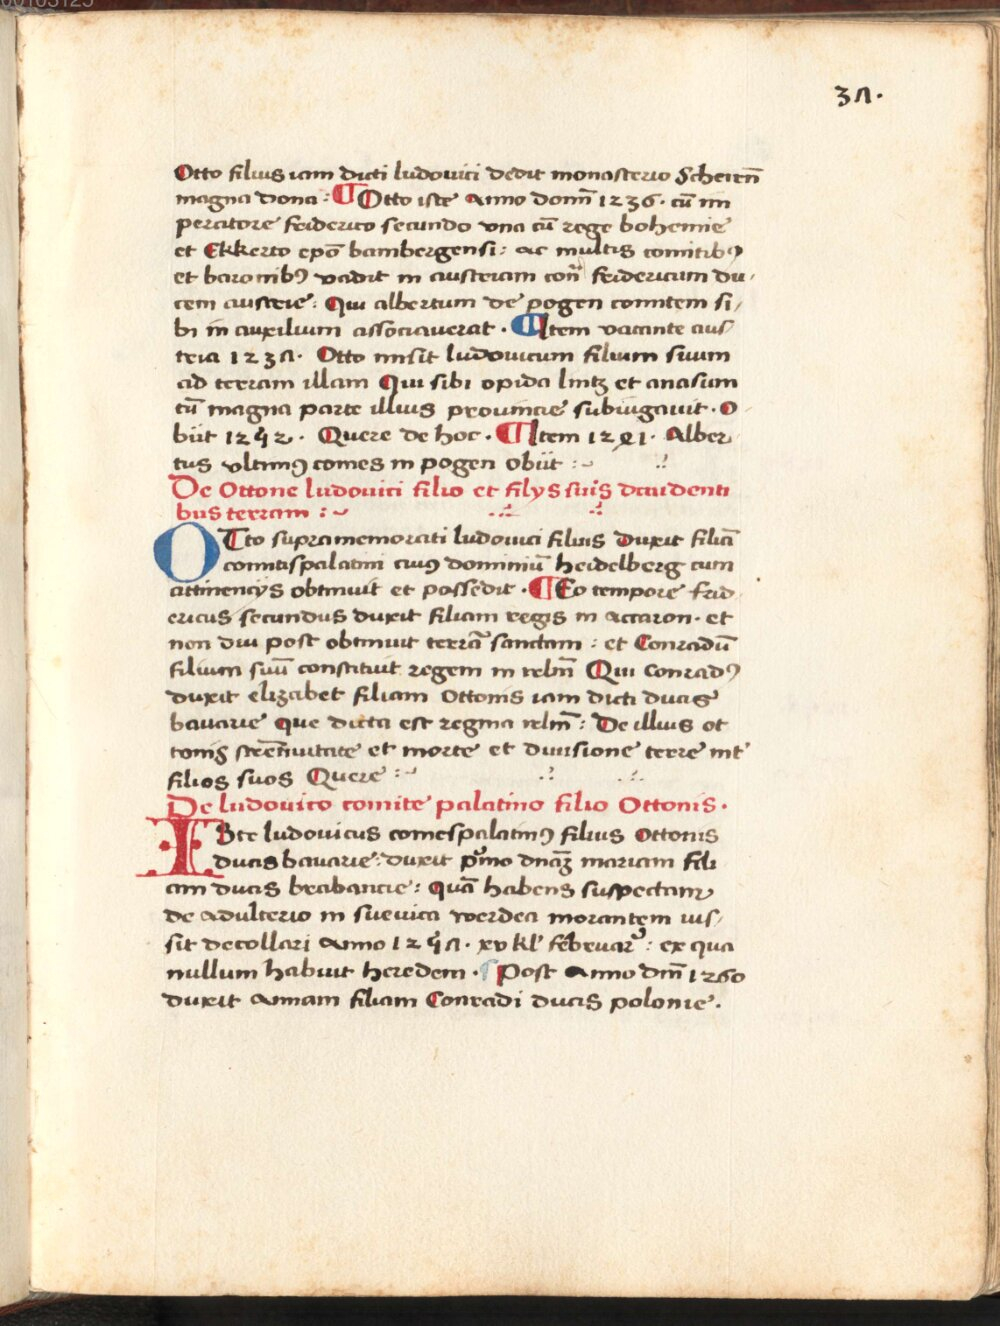 37.
Otto filius iam dicti ludouici dedit monasterio Scheirn̄
magna dona: ¶ Otto iste Anno domī 1236. cū im
peratore friderico secundo vna cū rege bohemie
et Ekkerto ep̄o bambergensi: ac multis comitibꝯ
et baronibꝯ vadit in austriam con̄ fridericum du,
cem austrie: Qui albertum de pogen comitem si,
bi in auxilium associauerat. ¶ Item vacante aus
tria 1237. Otto misit ludouicum filium suum
ad terram illam Qui sibi opida lintz et anasum
cū magna parte illius prouincie subiugauit. O
biit 1252. Quere de hoc. ¶ Item 1241. Alber
tus vltimꝯ comes in pogen obiit :~
De Ottone ludouici filio et filys suis diuidenti
bus terram :~
OTto supramemorati ludouici filius duxit filiā
comitispalatini cuiꝯ dominiū heidelberg cum
attinencys obtinuit et possedit. ¶ Eo tempore frid
ericus secundus duxit filiam regis in accaron. et
non diu post obtinuit terrā sanctam: et Conradū
filium suū constituit regem in relm̄ Qui Conradꝯ
duxit elizabet filiam Ottonis iam dicti ducis
bauarie que dicta est regina relm̄: De illius ot
tonis strēnuitate et morte et diuisione terre int̄
filios suos Quere :~
De ludouico comite palatino filio Ottonis.
ISte ludouicus comespalatinꝯ filius Ottonis
ducis bauarie: duxit pͥmo dnāʒ mariam fili
am ducis brabancie: Quā habens suspectam
de adulterio in sueuica werdea morantem ius,
sit decollari Anno 1257. xv kl' februarꝰ: ex qua
nullum habuit heredem. ¶ Post Anno dm̄ 1260
duxit Annam filiam Conradi ducis polonie.